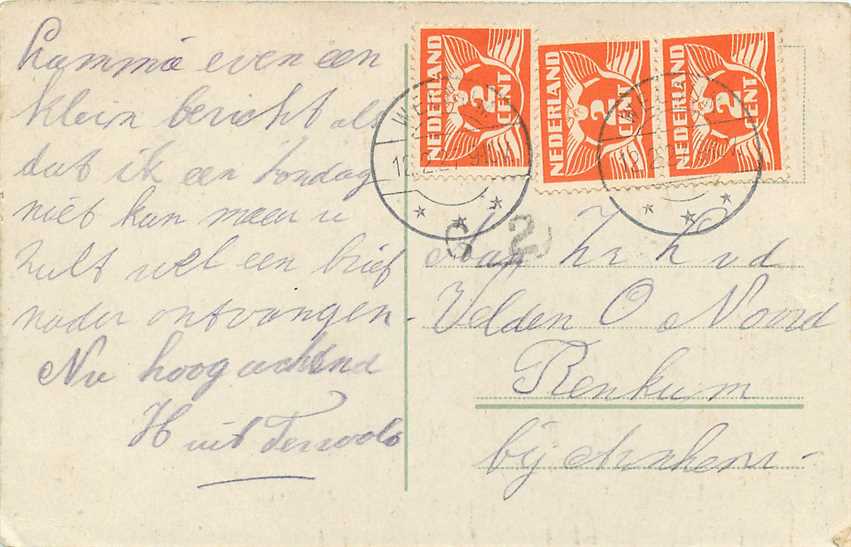 even een
klein bericht als
dat ik een Zondag
niet kan maar u
zult wel een brief
nader ontvangen.
Nu hoogachtend
H uit Terwolde
NEDERLAND
2
CENT
NEDERLAND
2
CENT
NEDERLAND
2
CENT
2
Aan Hr H v d
Velden O Noord
Renkum
bij Arnhem